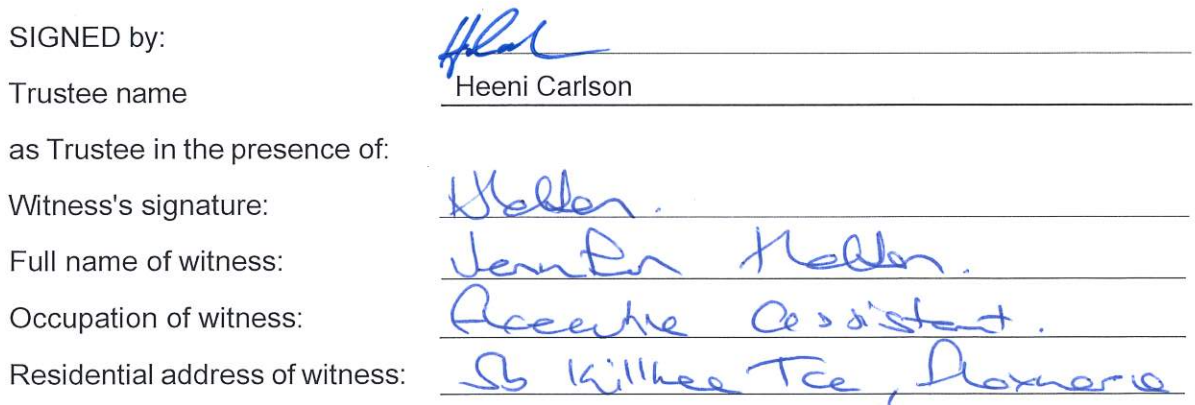 SIGNED by:
Trustee name Heeni Carlson
as Trustee in the presence of:
Witness's signature:
Full name of witness: Jennifer Holden.
Occupation of witness: Executive assistant.
Residential address of witness: Tce,